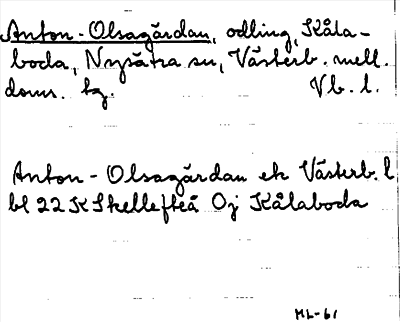 Anton-Olsagärdan, odling, Kåla-
boda, Nysätra sn, Västerb. mell.
doms. tg. Vb. l.
Anton-Olsagärdan ek Västerb. l
bl 22 K Skellefteå Oj Kålaboda
ML-61